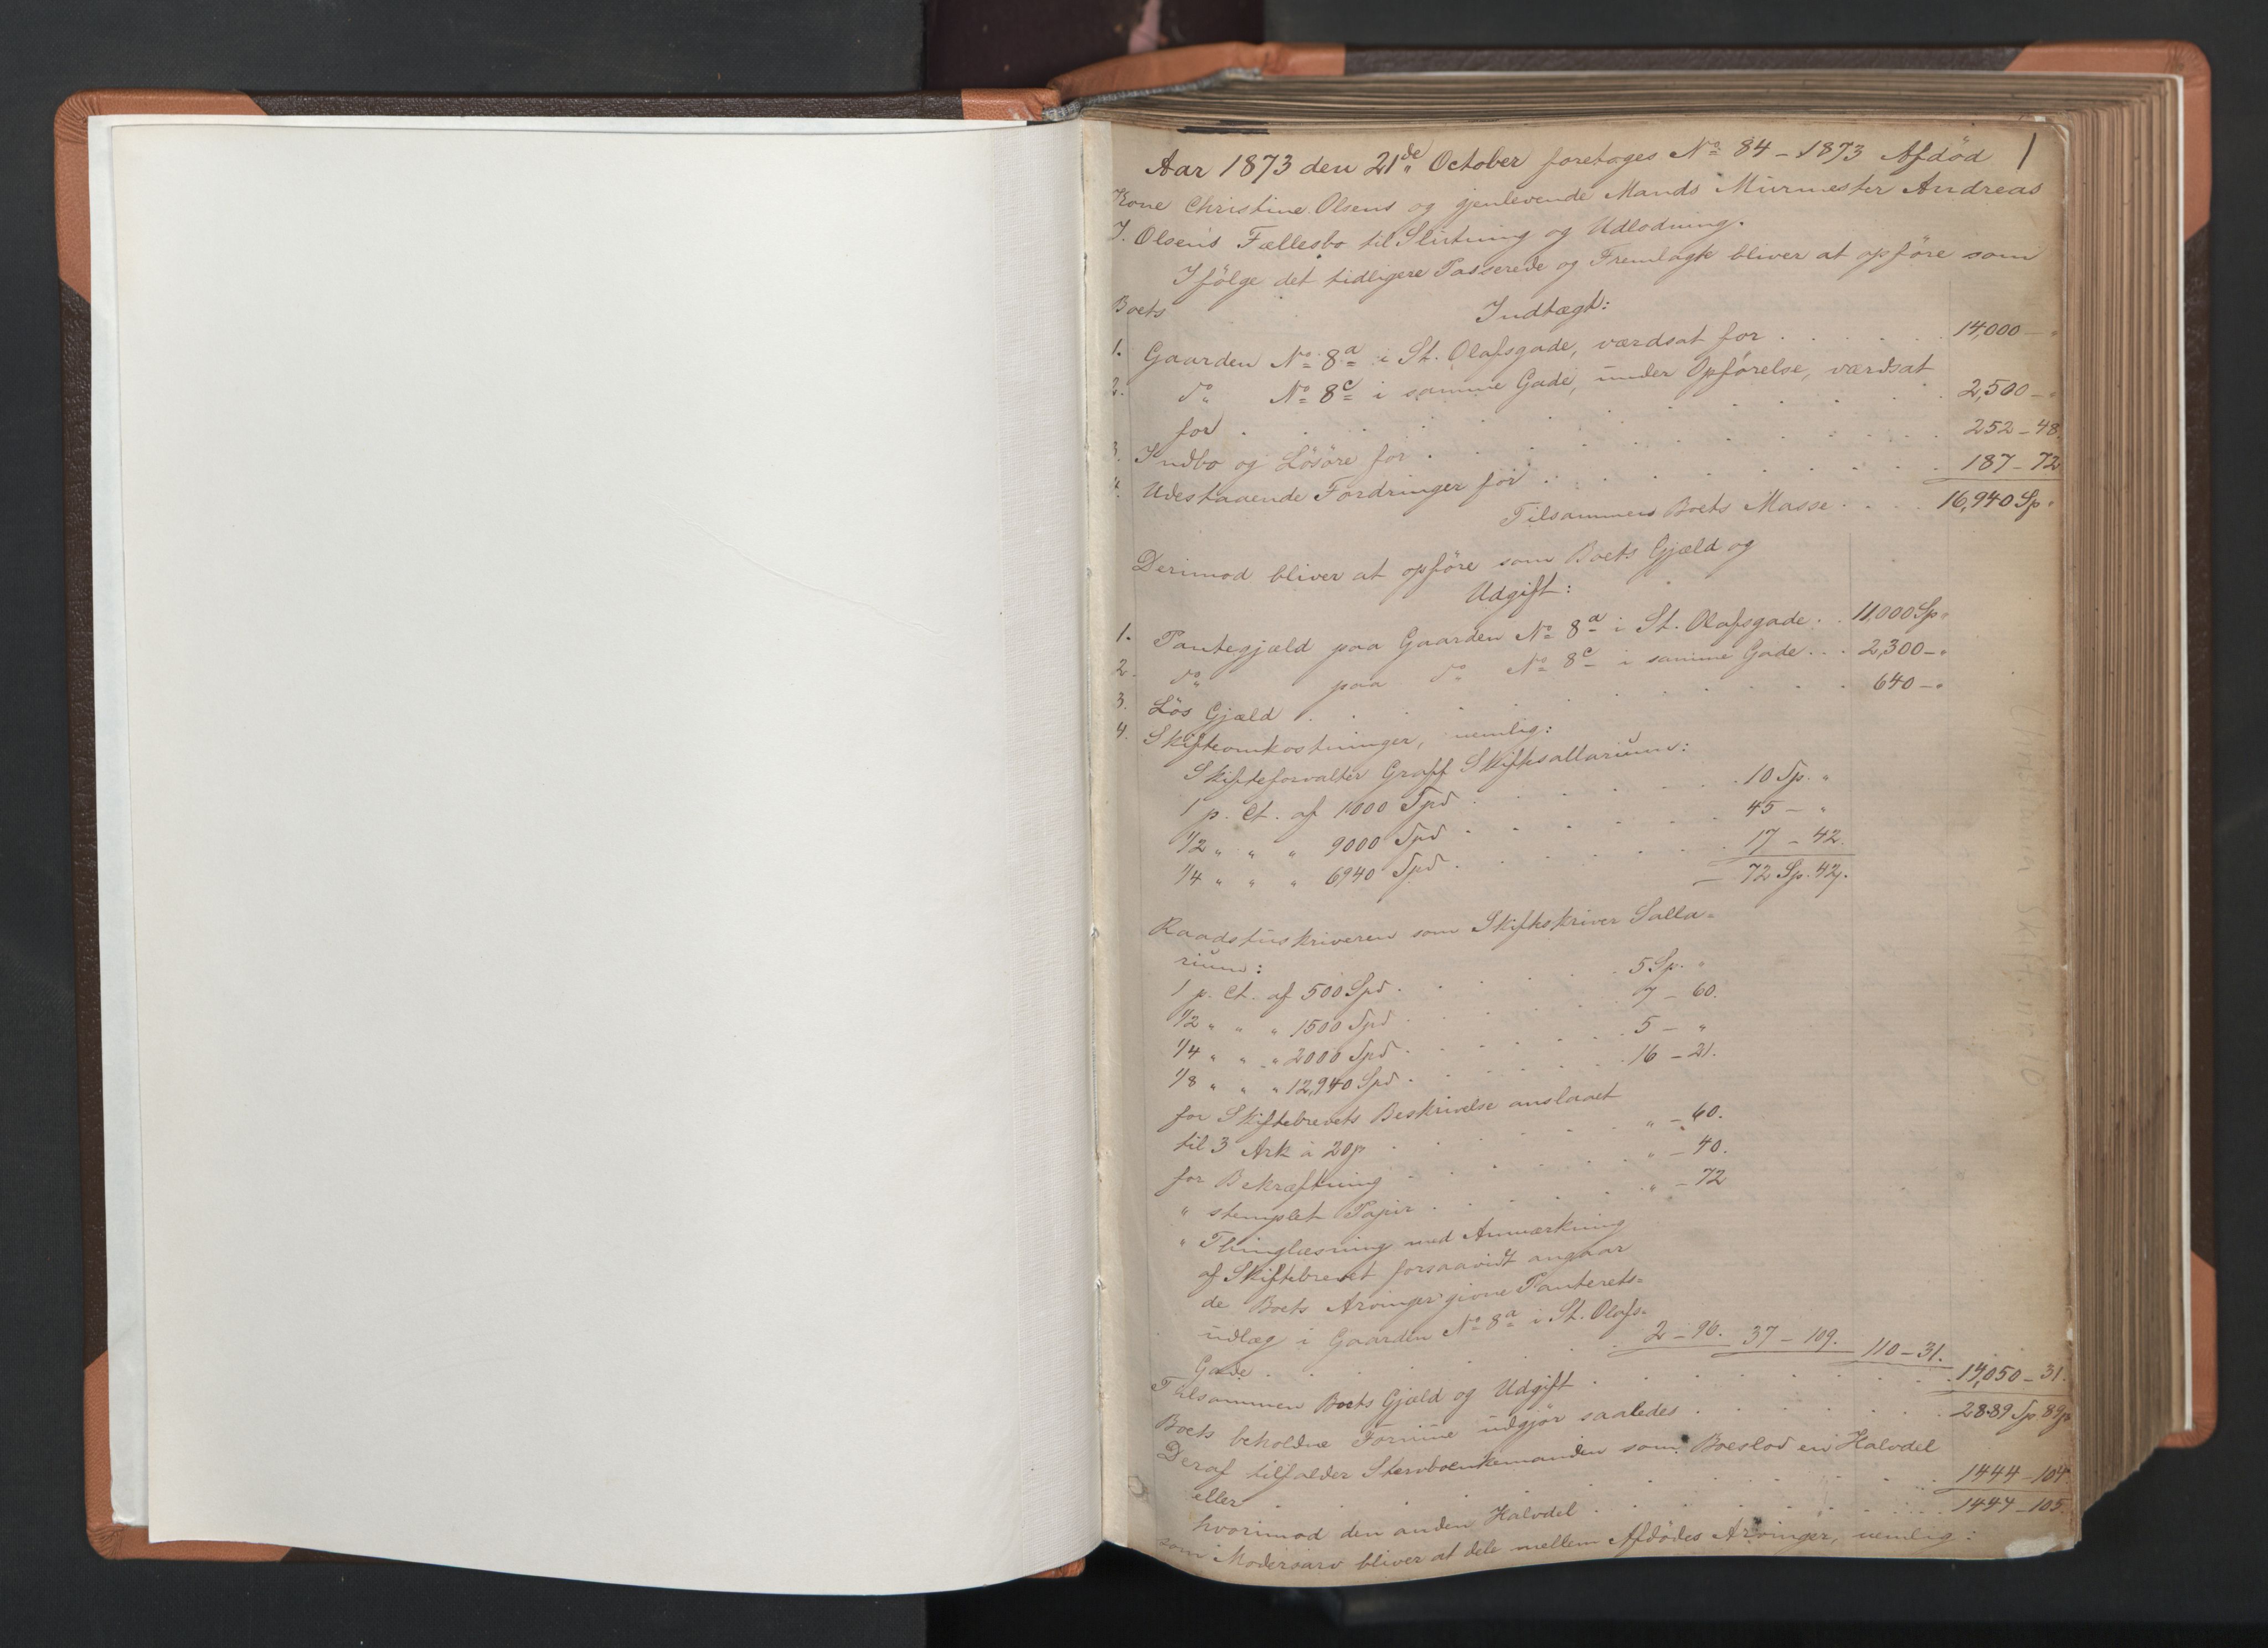 1
Aar 1873 den 21de October foretoges No 84 – 1873 Afdød
Kone Christine Olsens og gjenlevende Mands Murmester Andreas
J. Olsens Fællesbo til Slutning og Udlodning.
Ifølge det tidligere Passerede og Fremlagte bliver at opføre som
Boets
Indtægt:
1. Gaarden No 8a i St. Olafsgade, værdsat for . . . . . 14,000 – "
2. do No 8c i samme Gade, under Opførelse, værdsat
for . . . . . 2,500 – "
3. Indbo og Løsøre for . . . . . 252 – 48.
4. Udestaaende Fordringer for . . . . . 187 – 72
Tilsammen Boets Masse . . . . 16,940 Sp. "
Derimod bliver at opføre som Boets Gjæld og
Udgift:
1. Pantegjæld paa Gaarden No 8a i St. Olafsgade . . 11,000 Sp. "
2. do paa do No 8c i samme Gade . . . 2,300 – "
3. Løs Gjæld . . . . . 640 – "
4. Skifteomkostninger, nemlig:
Skifteforvalter Graff Skiftesallarium:
1 p. Ct. af 1000 Spd . . . . . 10 Sp. "
1/2 " " " 9000 Spd . . . . . 45 – "
1/4 " " " 6940 Spd . . . . . 17 – 42.
72 Sp. 42.
Raadstuskriveren som Skifteskriver Salla=
rium:
1 p. Ct. af 500 Spd . . . . . 5 Sp. "
1/2 " " " 1500 Spd . . . . . 7 – 60.
1/4 " " " 2000 Spd . . . . . 5 – "
1/8 " " " 12,940 Spd . . . . . 16 – 21.
for Skiftebrevets Beskrivelse anslaaet
til 3 Ark à 20 p . . . . . " – 60.
for Bekræftning . . . . . " – 40.
" stemplet Papir . . . . . " – 72
" Thinglæsning med Anmærkning
af Skiftebrevet forsaavidt angaar
de Boets Arvinger givne Panterets=
udlæg i Gaarden No 8a i St. Olafs=
Gade . . . . . 2 – 96. 37 – 109. 110 – 31.
Tilsammen Boets Gjæld og Udgift . . . . . 14,050 – 31.
Boets beholdne Formue udgjør saaledes . . . . . 2889 Sp 89 p
Deraf tilfalder Stervboenkemanden som Boeslod en Halvdel
eller . . . . . 1444 – 104.
hvorimod den anden Halvdel . . . . . 1444 – 105.
som Modersarv bliver at dele mellem Afdødes Arvinger, nemlig: